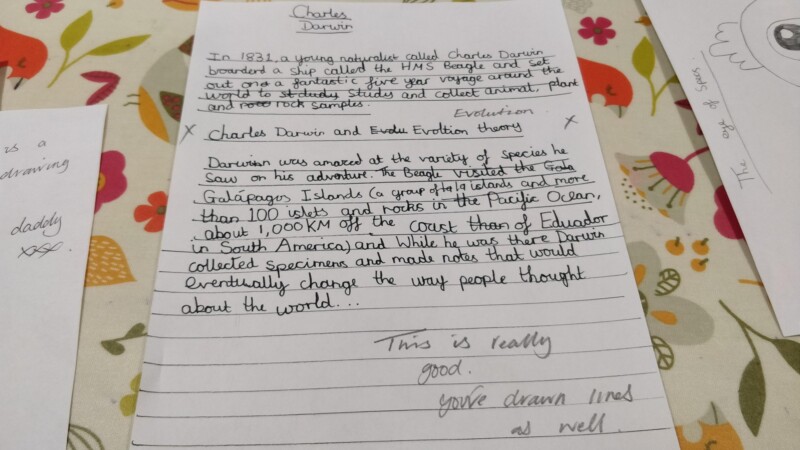 Charles
Darwin
In 1831, a young naturalist called Charles Darwin
boarded a ship called the HMS Beagle and set
out on a fantastic five year voyage around the
world to study study and collect animal, plant
and rock samples.
Evolution
x Charles Darwin and Evolu Evoltion theory x
Darwin was amazed at the variety of species he
saw on his adventure. The Beagle visited the Gala
Galápagos Islands (a group of 19 islands and more
than 100 islets and rocks in the Pacific Ocean,
about 1,000KM off the coast than of Eduador
in South America) and While he was there Darwin
collected specimens and made notes that would
eventually change the way people thought
about the world...
This is really
good.
you've drawn lines
as well.
is a
drawing
daddy
xxx.
The eye of